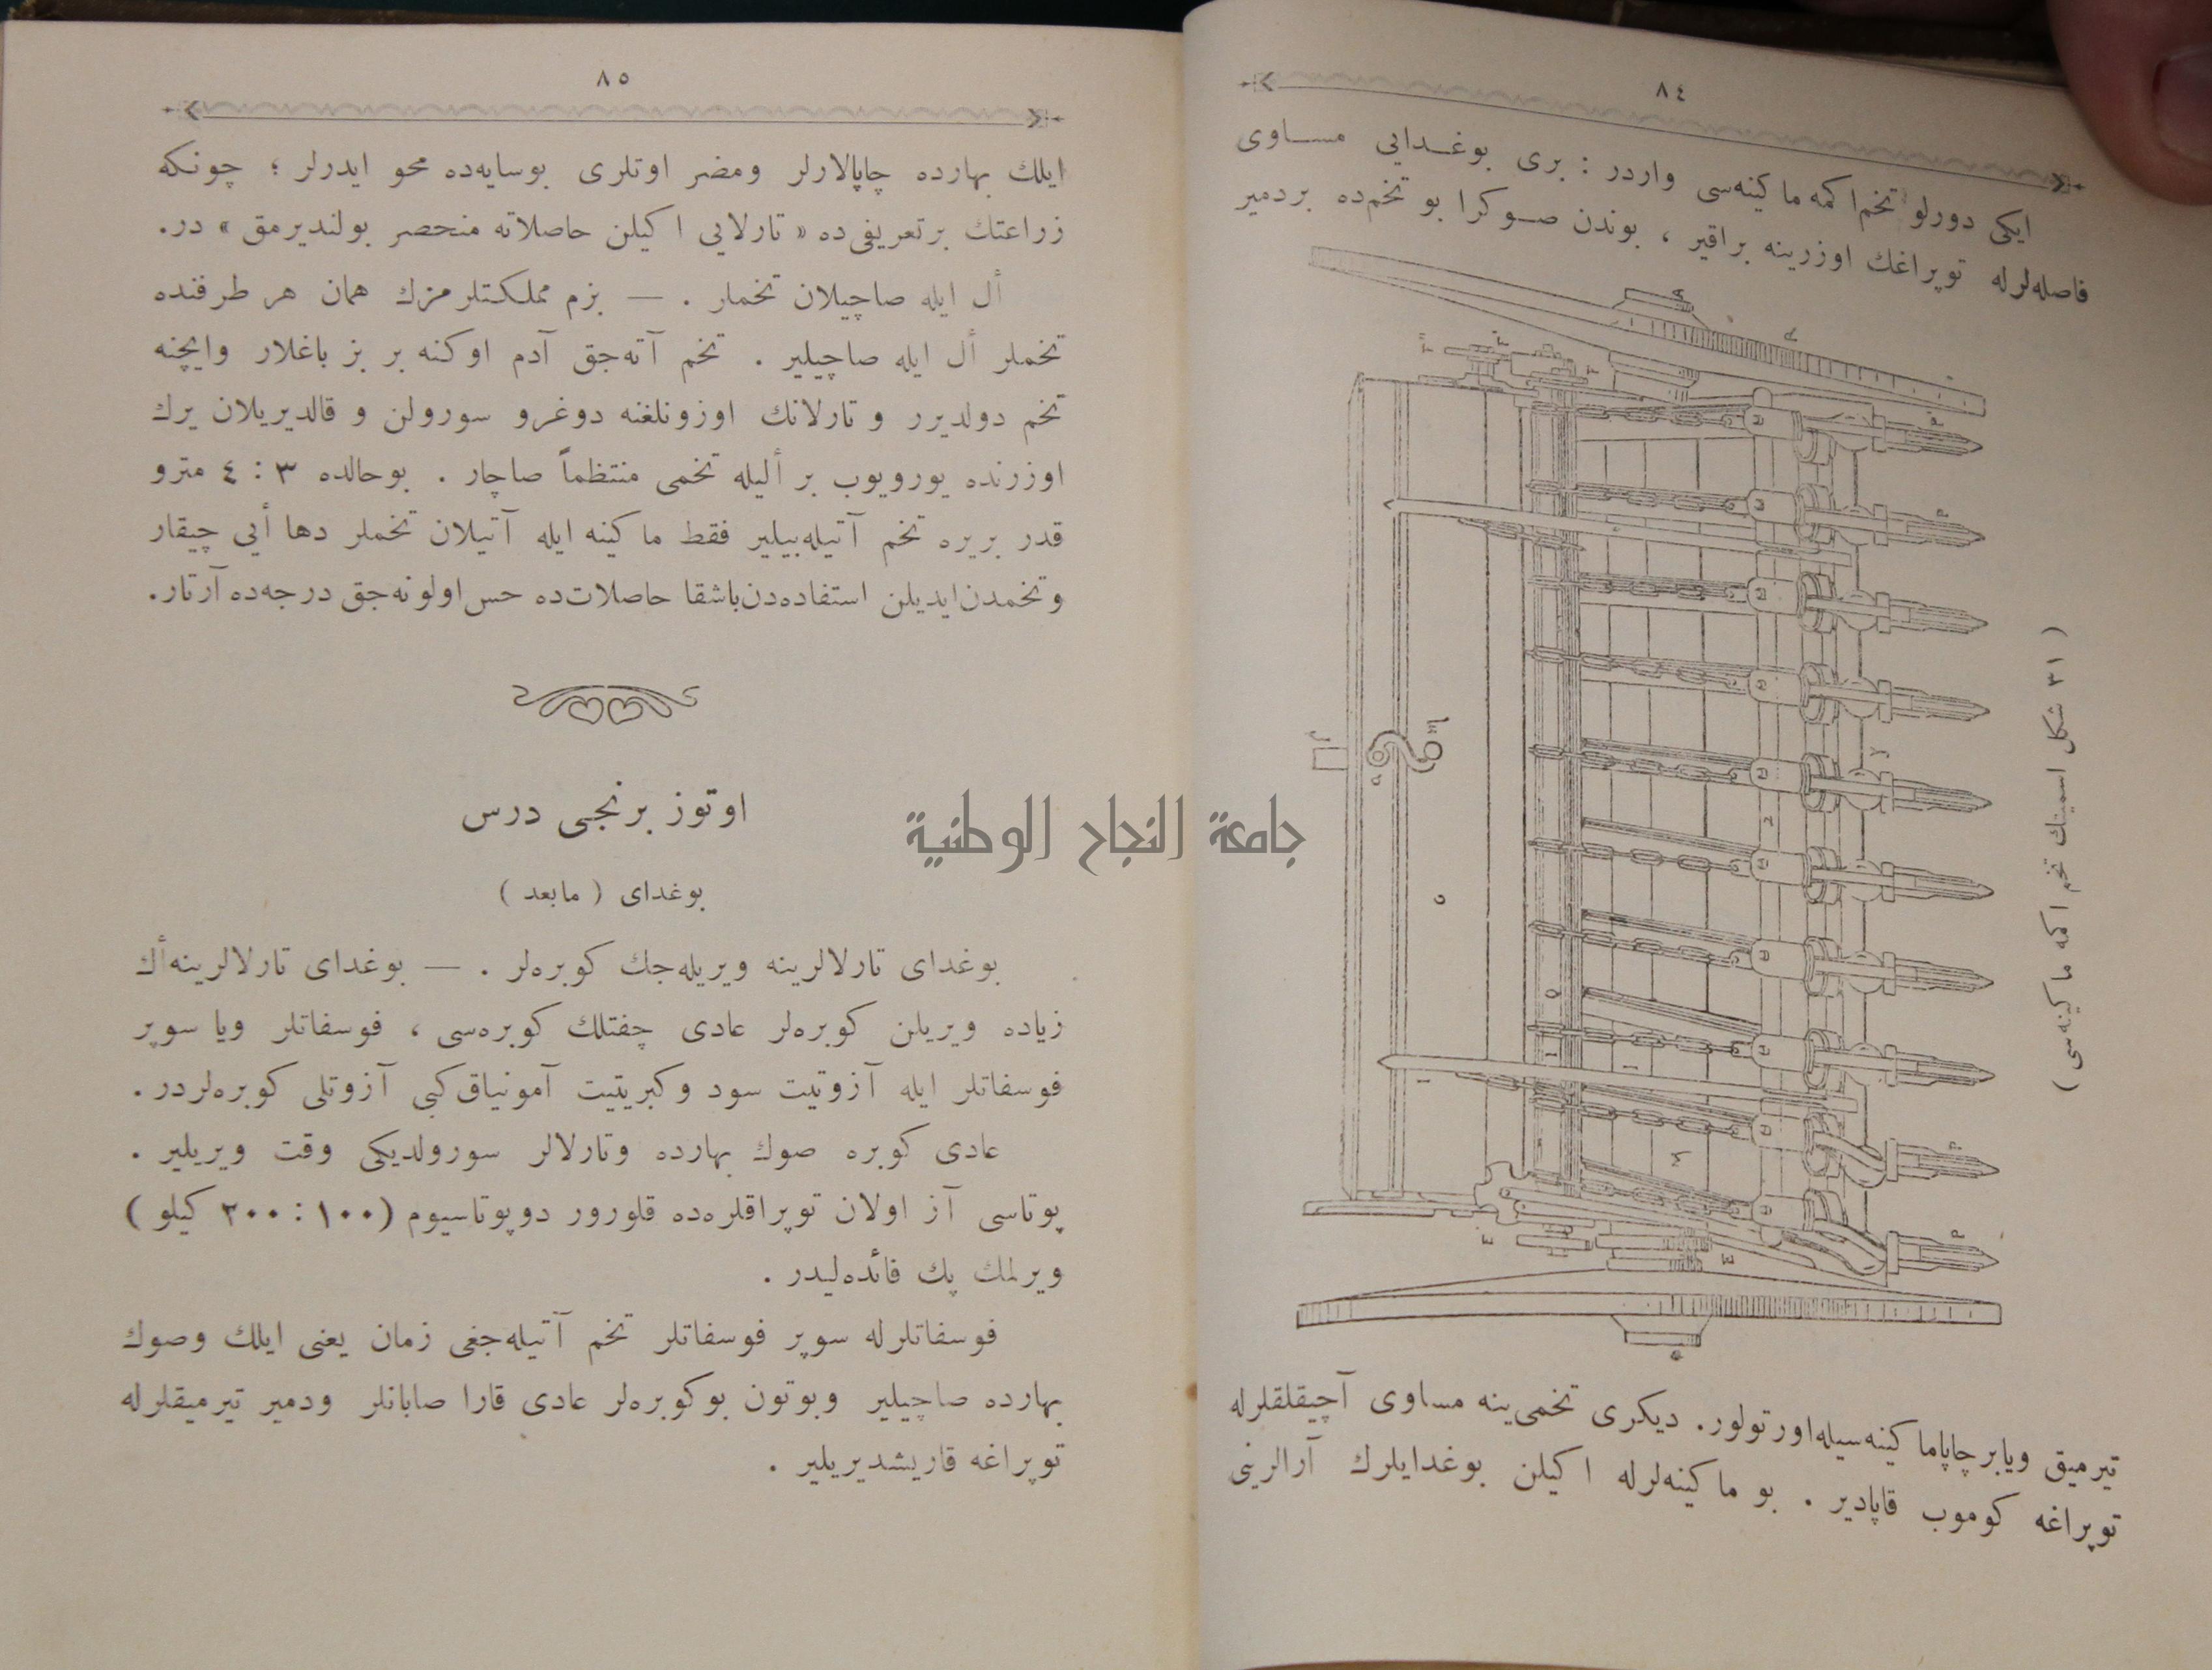 ٨٤
ایكی دورلو تخم اكمه ماكینه‌سی واردر : بری بوغـدایی مسـاوی
فاصله‌لرله توپراغك اوزرینه براقیر ، بوندن صـوكرا بو تخم‌ده بردمیر
( ٣١ شكل اسمیتك تخم اكمه ماكینه‌سی )
تیرمیق ویابر چاپاماكینه‌سیله‌اورتولور. دیكری تخمی‌ینه مساوی آچیقلقلرله
توپراغه كوموب قاپادیر . بو ماكینه‌لرله اكیلن بوغدایلرك آرالرینی
٨٥
ایلك بهارده چاپالارلر ومضر اوتلری بوسایه‌ده محو ایدرلر ؛ چونكه
زراعتك برتعریفی‌ده « تارلایی اكیلن حاصلاته منحصر بولندیرمق » در.
أل ایله صاچیلان تخملر . — بزم مملكتلرمزك همان هر طرفنده
تخملر أل ایله صاچیلیر . تخم آته‌جق آدم اوكنه بر بز باغلار وایچنه
تخم دولدیرر و تارلانك اوزونلغنه دوغرو سورولن و قالدیریلان یرك
اوزرنده یورویوب بر ألیله تخمی منتظماً صاچار . بوحالده ٣ : ٤ مترو
قدر بریره تخم آتیله‌بیلیر فقط ماكینه ایله آتیلان تخملر دها أیی چیقار
وتخمدن‌ایدیلن استفاده‌دن‌باشقا حاصلات‌ده حس‌اولونه‌جق درجه‌ده آرتار.
اوتوز برنجی درس
بوغدای ( مابعد )
بوغدای تارلالرینه ویریله‌جك كوبره‌لر . — بوغدای تارلالرینه‌أك
زیاده ویریلن كوبره‌لر عادی چفتلك كوبره‌سی ، فوسفاتلر ویا سوپر
فوسفاتلر ایله آزوتیت سود وكبریتیت آمونیاق‌كبی آزوتلی كوبره‌لردر .
عادی كوبره صوك بهارده وتارلالر سورولدیكی وقت ویریلیر .
پوتاسی آز اولان توپراقلره‌ده قلورور دوپوتاسیوم (١٠٠ : ٢٠٠ كیلو )
ویرلمك پك فائده‌لیدر .
فوسفاتلرله سوپر فوسفاتلر تخم آتیله‌جغی زمان یعنی ایلك وصوك
بهارده صاچیلیر وبوتون بوكوبره‌لر عادی قارا صابانلر ودمیر تیرمیقلرله
توپراغه قاریشدیریلیر .
جامعة النجاح الوطنية